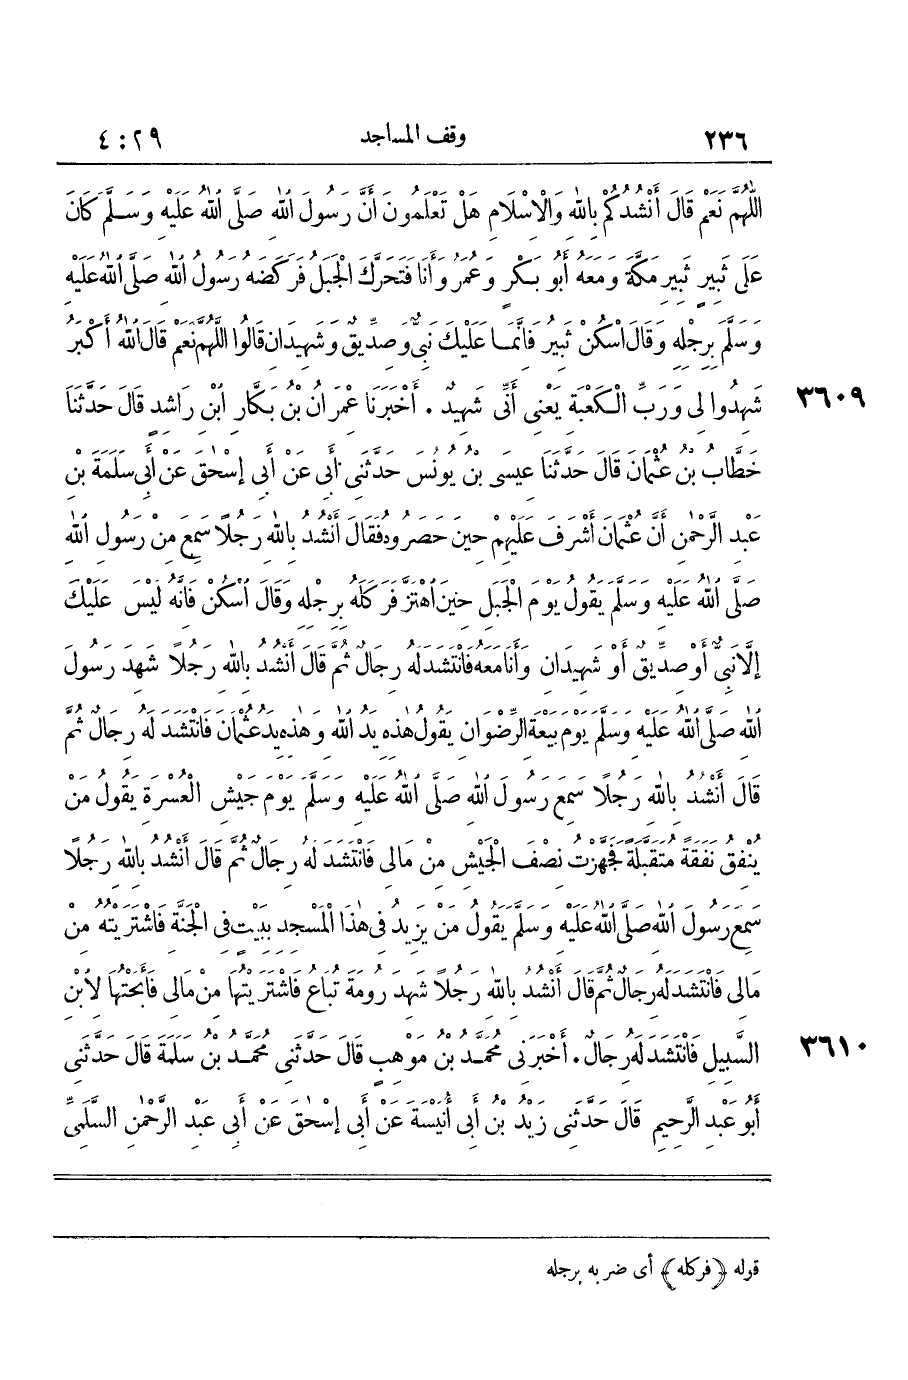 ٢٣٦ وقف المساجد ٢٩ : ٤
اللّٰهُمَّ نَعَمْ قَالَ أَنْشُدُكُمْ بِاللّٰهِ وَالْاِسْلَامِ هَلْ تَعْلَمُونَ أَنَّ رَسُولَ اللّٰهِ صَلَّى اللّٰهُ عَلَيْهِ وَسَلَّمَ كَانَ
عَلَى ثَبِيرٍ ثَبِيرِ مَكَّةَ وَمَعَهُ أَبُو بَكْرٍ وَعُمَرُ وَأَنَا فَتَحَرَّكَ الْجَبَلُ فَرَكَضَهُ رَسُولُ اللّٰهِ صَلَّى اللّٰهُ عَلَيْهِ
وَسَلَّمَ بِرِجْلِهِ وَقَالَ اسْكُنْ ثَبِيرُ فَاِنَّمَا عَلَيْكَ نَبِيٌّ وَصِدِّيقٌ وَشَهِيدَانِ قَالُوا اللّٰهُمَّ نَعَمْ قَالَ اللّٰهُ أَكْبَرُ
شَهِدُوا لِى وَرَبِّ الْكَعْبَةِ يَعْنِى أَنِّى شَهِيدٌ . أَخْبَرَنَا عِمْرَانُ بْنُ بَكَّارِ ابْنِ رَاشِدٍ قَالَ حَدَّثَنَا ٣٦٠٩
خَطَّابُ بْنُ عُثْمَانَ قَالَ حَدَّثَنَا عِيسَى بْنُ يُونُسَ حَدَّثَنِى أَبِى عَنْ أَبِى إِسْحٰقَ عَنْ أَبِى سَلَمَةَ بْنِ
عَبْدِ الرَّحْمٰنِ أَنَّ عُثْمَانَ أَشْرَفَ عَلَيْهِمْ حِينَ حَصَرُوهُ فَقَالَ أَنْشُدُ بِاللّٰهِ رَجُلًا سَمِعَ مِنْ رَسُولِ اللّٰهِ
صَلَّى اللّٰهُ عَلَيْهِ وَسَلَّمَ يَقُولُ يَوْمَ الْجَبَلِ حِينَ اهْتَزَّ فَرَكَلَهُ بِرِجْلِهِ وَقَالَ اسْكُنْ فَاِنَّهُ لَيْسَ عَلَيْكَ
إِلَّا نَبِيٌّ أَوْ صِدِّيقٌ أَوْ شَهِيدَانِ وَأَنَا مَعَهُ فَانْتَشَدَ لَهُ رِجَالٌ ثُمَّ قَالَ أَنْشُدُ بِاللّٰهِ رَجُلًا شَهِدَ رَسُولَ
اللّٰهِ صَلَّى اللّٰهُ عَلَيْهِ وَسَلَّمَ يَوْمَ بَيْعَةِ الرِّضْوَانِ يَقُولُ هٰذِهِ يَدُ اللّٰهِ وَهٰذِهِ يَدُ عُثْمَانَ فَانْتَشَدَ لَهُ رِجَالٌ ثُمَّ
قَالَ أَنْشُدُ بِاللّٰهِ رَجُلًا سَمِعَ رَسُولَ اللّٰهِ صَلَّى اللّٰهُ عَلَيْهِ وَسَلَّمَ يَوْمَ جَيْشِ الْعُسْرَةِ يَقُولُ مَنْ
يُنْفِقُ نَفَقَةً مُتَقَبَّلَةً فَجَهَّزْتُ نِصْفَ الْجَيْشِ مِنْ مَالِى فَانْتَشَدَ لَهُ رِجَالٌ ثُمَّ قَالَ أَنْشُدُ بِاللّٰهِ رَجُلًا
سَمِعَ رَسُولَ اللّٰهِ صَلَّى اللّٰهُ عَلَيْهِ وَسَلَّمَ يَقُولُ مَنْ يَزِيدُ فِى هٰذَا الْمَسْجِدِ بِبَيْتٍ فِى الْجَنَّةِ فَاشْتَرَيْتُهُ مِنْ
مَالِى فَانْتَشَدَ لَهُ رِجَالٌ ثُمَّ قَالَ أَنْشُدُ بِاللّٰهِ رَجُلًا شَهِدَ رُومَةَ تُبَاعُ فَاشْتَرَيْتُهَا مِنْ مَالِى فَأَبَحْتُهَا لِابْنِ
السَّبِيلِ فَانْتَشَدَ لَهُ رِجَالٌ . أَخْبَرَنِى مُحَمَّدُ بْنُ مَوْهَبٍ قَالَ حَدَّثَنِى مُحَمَّدُ بْنُ سَلَمَةَ قَالَ حَدَّثَنِى ٣٦١٠
أَبُو عَبْدِ الرَّحِيمِ قَالَ حَدَّثَنِى زَيْدُ بْنُ أَبِى أُنَيْسَةَ عَنْ أَبِى إِسْحٰقَ عَنْ أَبِى عَبْدِ الرَّحْمٰنِ السُّلَمِيِّ
قوله ﴿فركله﴾ أى ضربه برجله